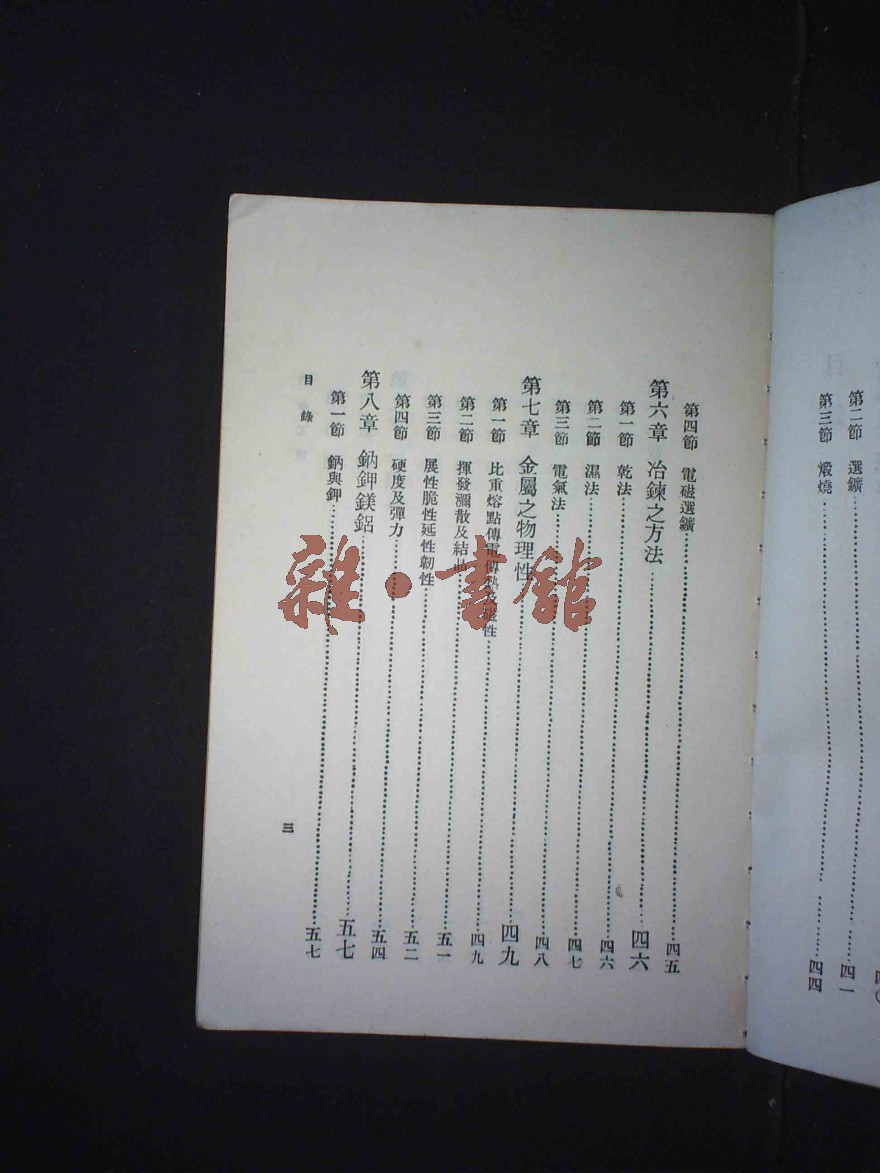 四〇
第二節 選鑛………四一
第三節 煅燒………四四
第四節 電磁選鑛………四五
第六章 冶鍊之方法………四六
第一節 乾法………四六
第二節 濕法………四七
第三節 電氣法………四八
第七章 金屬之物理性………四九
第一節 比重熔點傳電傳熱及磁性………四九
第二節 揮發瀰散及結晶………五一
第三節 展性脆性延性韌性………五二
第四節 硬度及彈力………五四
第八章 鈉鉀鎂鋁………五七
第一節 鈉與鉀………五七
目錄
三
雜·書館